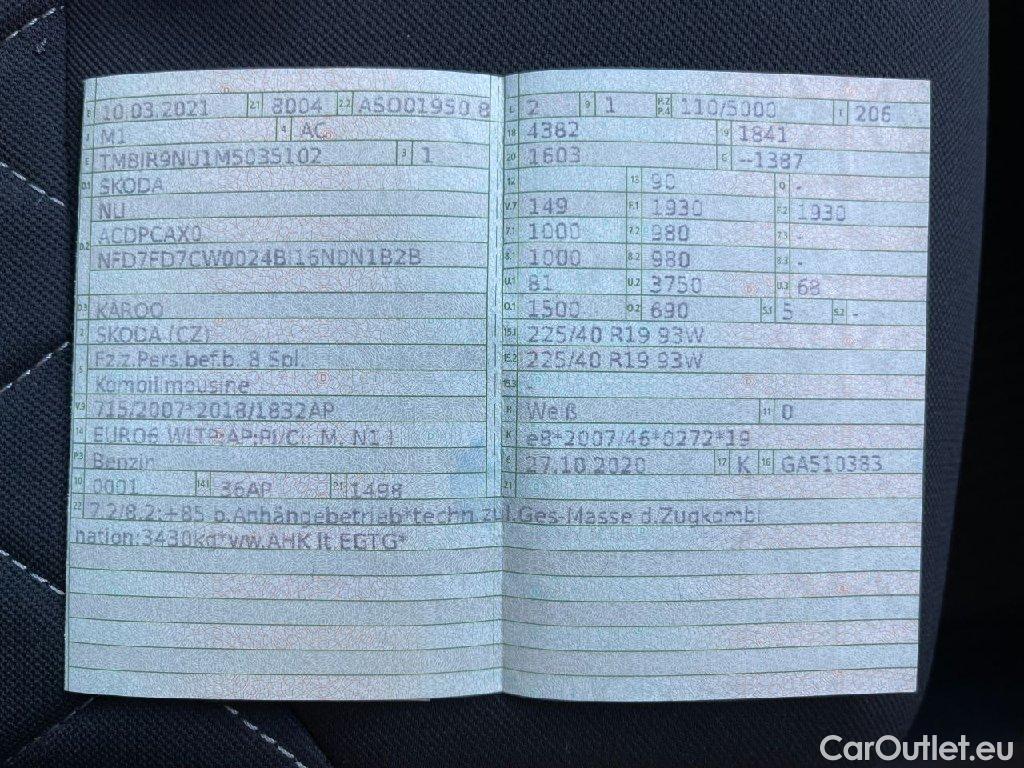 B 10.03.2021 2.1 8004 2.2 ASO01950 8
J M1 4 AC
E TM8JR9NU1M5035102 3 1
D.1 SKODA
NU
D.2 ACDPCAX0
NFD7FD7CW0024B 16N0N1B2B
D.3 KAROQ
2 SKODA (CZ)
5 Fz.z.Pers.bef.b. 8 Spl.
Kombilimousine
V.9 715/2007*2018/1832AP
14 EURO6 WLTP;AP;PI/CI; M, N1 I
P.3 Benzin
10 0001 14.1 36AP P.1 1498
L 2 9 1 P.2 P.4 110/5000 T 206
18 4382 19 1841
20 1603 G --1387
12 13 90 Q -
V.7 149 F.1 1930 F.2 1930
7.1 1000 7.2 980 7.3 -
8.1 1000 8.2 980 8.3 -
U.1 81 U.2 3750 U.3 68
O.1 1500 O.2 690 S.1 5 S.2 -
15.1 225/40 R19 93W
15.2 225/40 R19 93W
15.3 -
R Weiß 11 0
K e8*2007/46*0272*19
6 27.10.2020 17 K 16 GA510383
21
22 7.2/8.2:+85 b.Anhängebetrieb*techn.zul.Ges-Masse d.Zugkombi
nation:3430kg*ww.AHK lt.EGTG*
CarOutlet.eu